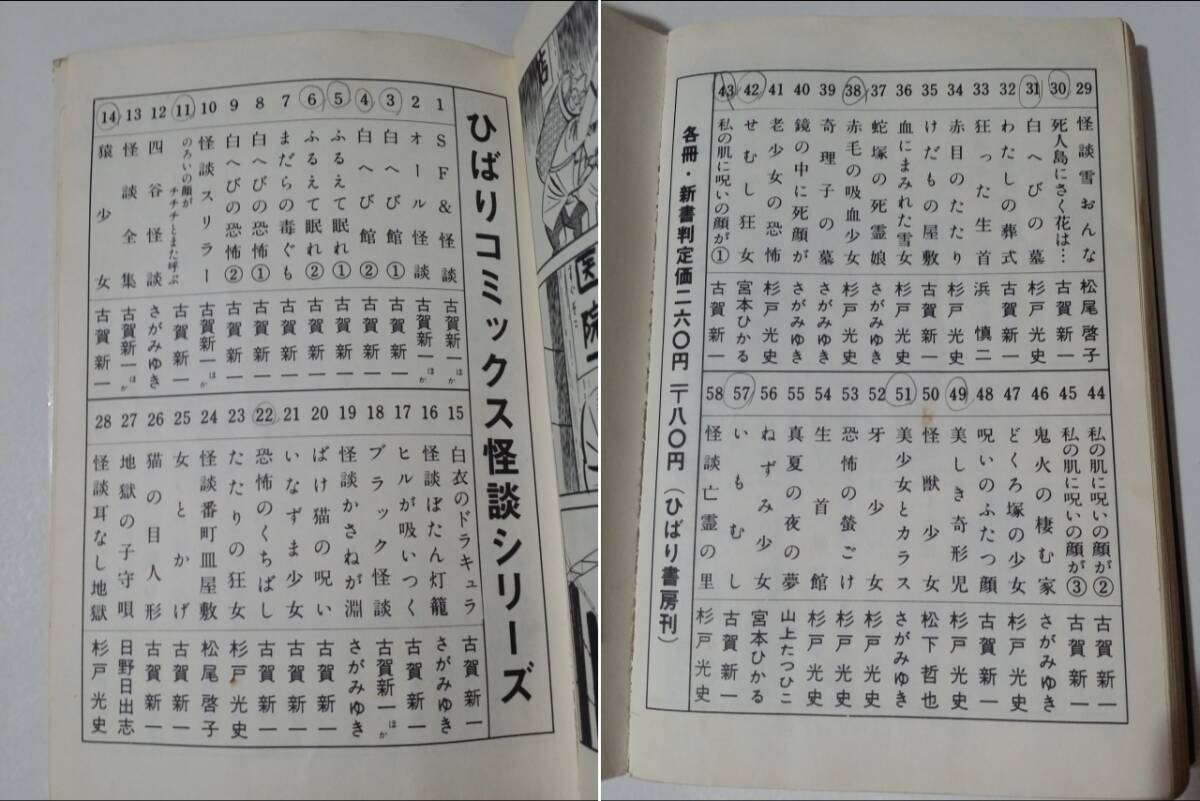 ひばりコミックス怪談シリーズ
1 SF&怪談 古賀新一ほか
2 オール怪談 古賀新一ほか
3 白へび館① 古賀新一
4 白へび館② 古賀新一
5 ふるえて眠れ① 古賀新一
6 ふるえて眠れ② 古賀新一
7 まだらの毒ぐも 古賀新一
8 白へびの恐怖① 古賀新一
9 白へびの恐怖② 古賀新一
10 怪談スリラー 古賀新一ほか
11 のろいの顔がチチチとまた呼ぶ 古賀新一
12 四谷怪談 さがみゆき
13 怪談全集 古賀新一ほか
14 猿少女 古賀新一
15 白衣のドラキュラ 古賀新一
16 怪談ぼたん灯籠 さがみゆき
17 ヒルが吸いつく 古賀新一
18 ブラック怪談 古賀新一ほか
19 怪談かさねが淵 さがみゆき
20 ばけ猫の呪い 古賀新一
21 いなずま少女 古賀新一
22 恐怖のくちばし 古賀新一
23 たたりの狂女 杉戸光史
24 怪談番町皿屋敷 松尾啓子
25 女とかげ 古賀新一
26 猫の目人形 古賀新一
27 地獄の子守唄 日野日出志
28 怪談耳なし地獄 杉戸光史
29 怪談雪おんな 松尾啓子
30 死人島にさく花は… 古賀新一
31 白へびの墓 杉戸光史
32 わたしの葬式 古賀新一
33 狂った生首 浜慎二
34 赤目のたたり 杉戸光史
35 けだもの屋敷 古賀新一
36 血にまみれた雪女 杉戸光史
37 蛇塚の死霊娘 さがみゆき
38 赤毛の吸血少女 杉戸光史
39 奇理子の墓 さがみゆき
40 鏡の中に死顔が さがみゆき
41 老少女の恐怖 杉戸光史
42 せむし狂女 宮本ひかる
43 私の肌に呪いの顔が① 古賀新一
44 私の肌に呪いの顔が② 古賀新一
45 私の肌に呪いの顔が③ 古賀新一
46 鬼火の棲む家 さがみゆき
47 どくろ塚の少女 杉戸光史
48 呪いのふたつ顔 古賀新一
49 美しき奇形児 杉戸光史
50 怪獣少女 松下哲也
51 美少女とカラス さがみゆき
52 牙少女 杉戸光史
53 恐怖の螢ごけ 杉戸光史
54 生首館 杉戸光史
55 真夏の夜の夢 山上たつひこ
56 ねずみ少女 宮本ひかる
57 いもむし 古賀新一
58 怪談亡霊の里 杉戸光史
各冊・新書判定価二六〇円 〒八〇円(ひばり書房刊)
医院